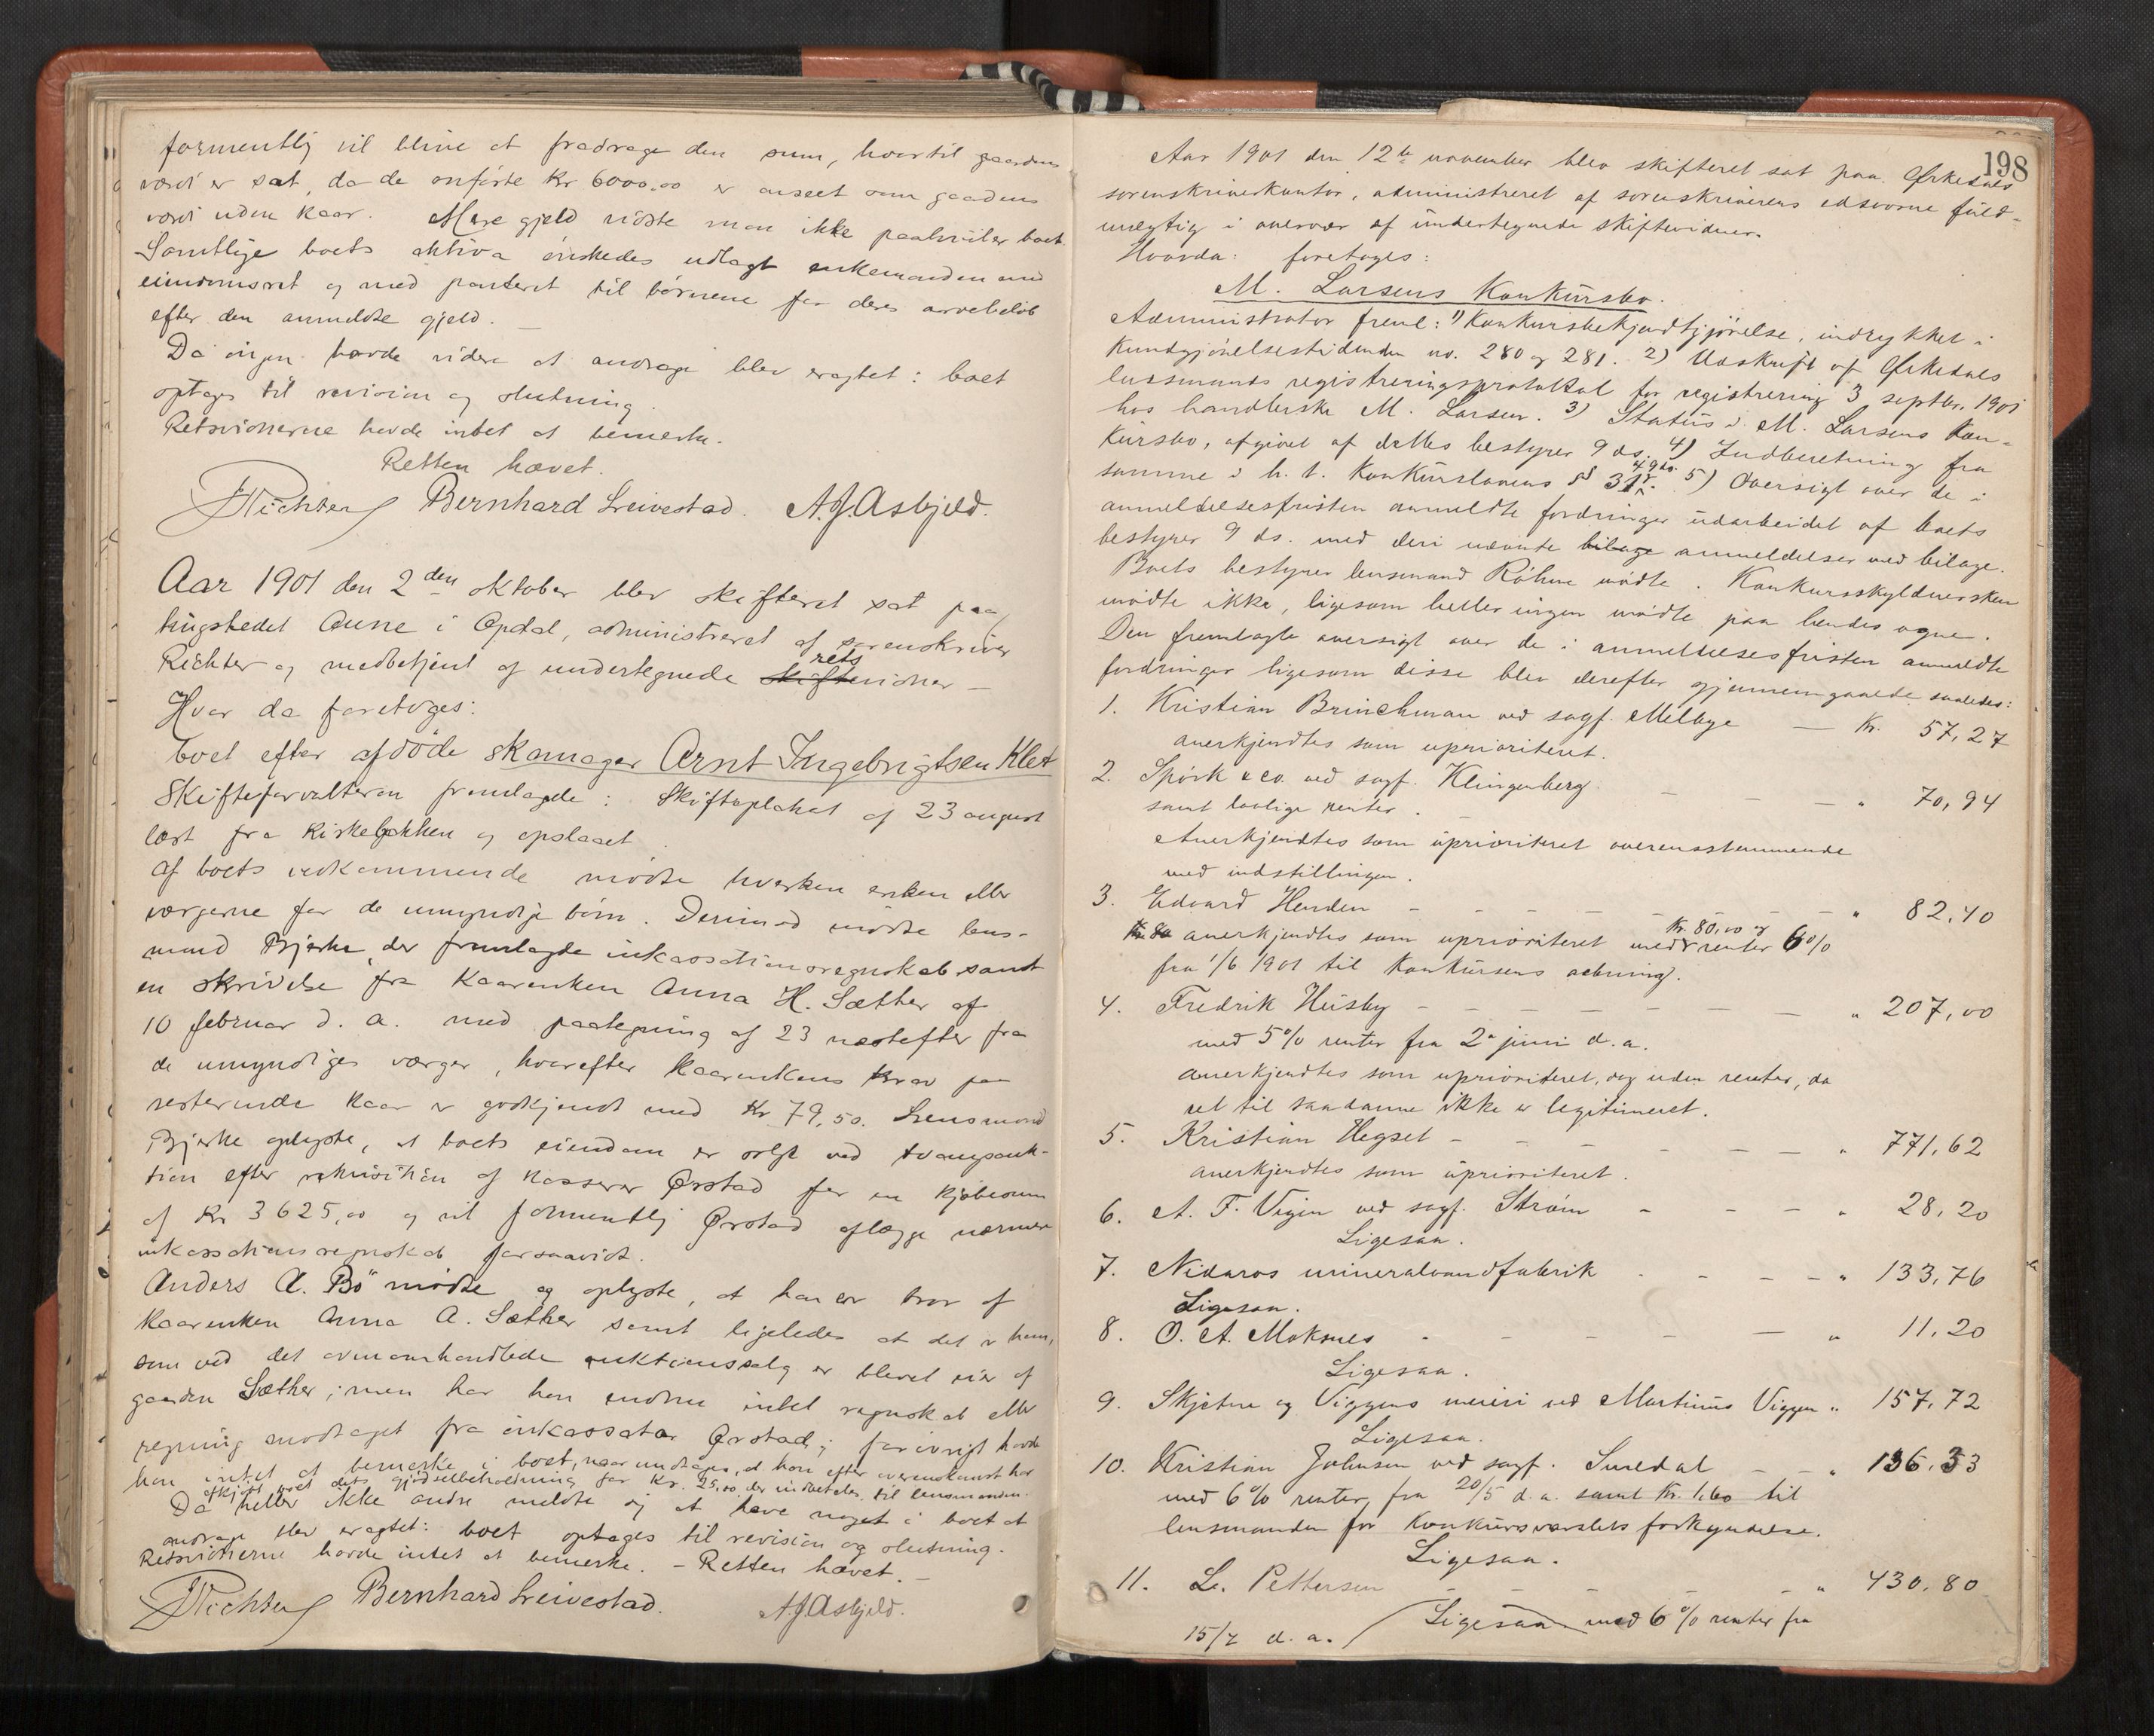 formentlig vil blive at fradrage den sum, hvortil gaardens
værdi er sat, da de anførte Kr 6000,00 er anseet som gaardens
værdi uden kaar. Mere gjeld vidste man ikke paahviler boet.
Samtlige boets aktiva ønskedes udlagt enkemanden med
eiendomsret og med panteret til børnene for deres arvebeløb
efter den anmeldte gjeld. —
Da ingen havde videre at andrage blev eragtet: boet
optages til revision og slutning.
Retsvidnerne havde intet at bemerke.
Retten hævet.
Richter Bernhard Leivestad. A.J. Asbjeld.
Aar 1901 den 2den oktober blev skifteret sat paa
tingstedet Aune i Opdal, administreret af sorenskriver
Richter og medbetjent af undertegnede skifte rets vidner —
Hvor da foretoges:
boet efter afdøde skomager Arnt Ingebrigtsen Klet
Skifteforvalteren fremlagde: Skifteplakat af 23 august
læst fra kirkebakken og opslaaet.
Af boets vedkommende mødte hverken enken eller
værgerne for de umyndige børn. Derimod mødte lens-
mand Bjerke, der fremlagde inkassationsregnskab samt
en skrivelse fra Kaarenken Anna H. Sæther af
10 februar d. a. med paategning af 23 næstefter fra
de umyndiges værger, hvorefter kaarenkens krav paa
resterende kaar er godkjendt med Kr 79,50. Lensmand
Bjerke oplyste, at boets eiendom er solgt ved tvangsauk-
tion efter rekvisition af kasserer Ørstad for en kjøbesum
af Kr 3625,00 og vil formentlig Ørstad aflægge nærmere
inkassationsregnskab forsaavidt.
Anders A. Bø mødte og oplyste, at han er bror af
Kaarenken Anna A. Sæther samt ligeledes at det er ham,
som ved det ovenomhandlede auktionssalg er blevet eier af
gaarden Sæther; men har han endnu intet regnskab eller
regning modtaget fra inkassator Ørstad; forøvrigt havde
han intet at bemerke i boet, naar undtages, at han efter overenskomst har
afkjøbt boet dets gjødselbeholdning for Kr. 25,00, der indbetales til lensmanden.
Da heller ikke andre meldte sig at have noget i boet at
andrage blev eragtet: boet optages til revision og slutning.
Retsvidnerne havde intet at bemerke. — Retten hævet. —
Richter Bernhard Leivestad. A.J. Asbjeld.
198
Aar 1901 den 12te november blev skifteret sat paa Ørkedals
sorenskriverkontor, administreret af sorenskriverens edsvorne fuld-
mægtig i overvær af undertegnede skiftevidner.
Hvorda: foretoges:
M. Larsens Konkursbo.
Administrator freml: 1) Konkursbekjendtgjørelse, indrykket i
Kundgjørelsestidenden no. 280 og 281. 2) Udskrift af Ørkedals
lensmands registreringsprotokol for registrering 3 septbr. 1901
hos handlerske M. Larsen. 3) Status i M. Larsens Kon-
kursbo, afgivet af dettes bestyrer 9 ds. 4) Indberetning fra
samme i h. t. Konkurslovens § 31 af 9 ds. 5) Oversigt over de i
anmeldelsesfristen anmeldte fordringer udarbeidet af boets
bestyrer 9 ds. med deri nævnte bilage anmeldelser med bilage.
Boets bestyrer lensmand Röhme mødte. Konkursskyldnersken
mødte ikke, ligesom heller ingen mødte paa hendes vegne.
Den fremlagte oversigt over de i anmeldelsesfristen anmeldte
fordringer ligesom disse blev derefter gjennemgaaede saaledes:
1. Kristian Brinchman ved sagf. Melbye — Kr. 57,27
anerkjendtes som uprioriteret.
2. Spørk & co. ved sagf. Klingenberg - - - " 70,94
samt lovlige renter.
Anerkjendtes som uprioriteret overensstemmende
med indstillingen.
3. Edvard Henden - - - - " 82,40
Kr. 80 anerkjendtes som uprioriteret med Kr. 80,00 og renter 6%
fra 1/6 1901 til Konkursens aabning.
4. Fredrik Husby - - - - - " 207,00
med 5% renter fra 2. juni d. a.
anerkjendtes som uprioriteret, dog uden renter, da
ret til saadanne ikke er legitimeret.
5. Kristian Hegset - - - - - " 771,62
anerkjendtes som uprioriteret.
6. A. F. Vigen ved sagf. Strøm - - - " 28,20
Ligesaa.
7. Nidaros mineralvandfabrik - - - - " 133,76
Ligesaa.
8. O. A. Moksnes - - - - — " 11,20
Ligesaa.
9. Skjetne og Viggens meieri ved Martinus Viggen " 157,72
Ligesaa.
10. Kristian Johnsen ved sagf. Suredal - - " 136,33
med 6% renter, fra 20/5 d. a. samt Kr. 1,60 til
lensmanden for Konkursvarslets forkyndelse.
Ligesaa.
11. L. Pettersen - - - - - " 430,80
Ligesaa med 6% renter fra
15/7 d. a.